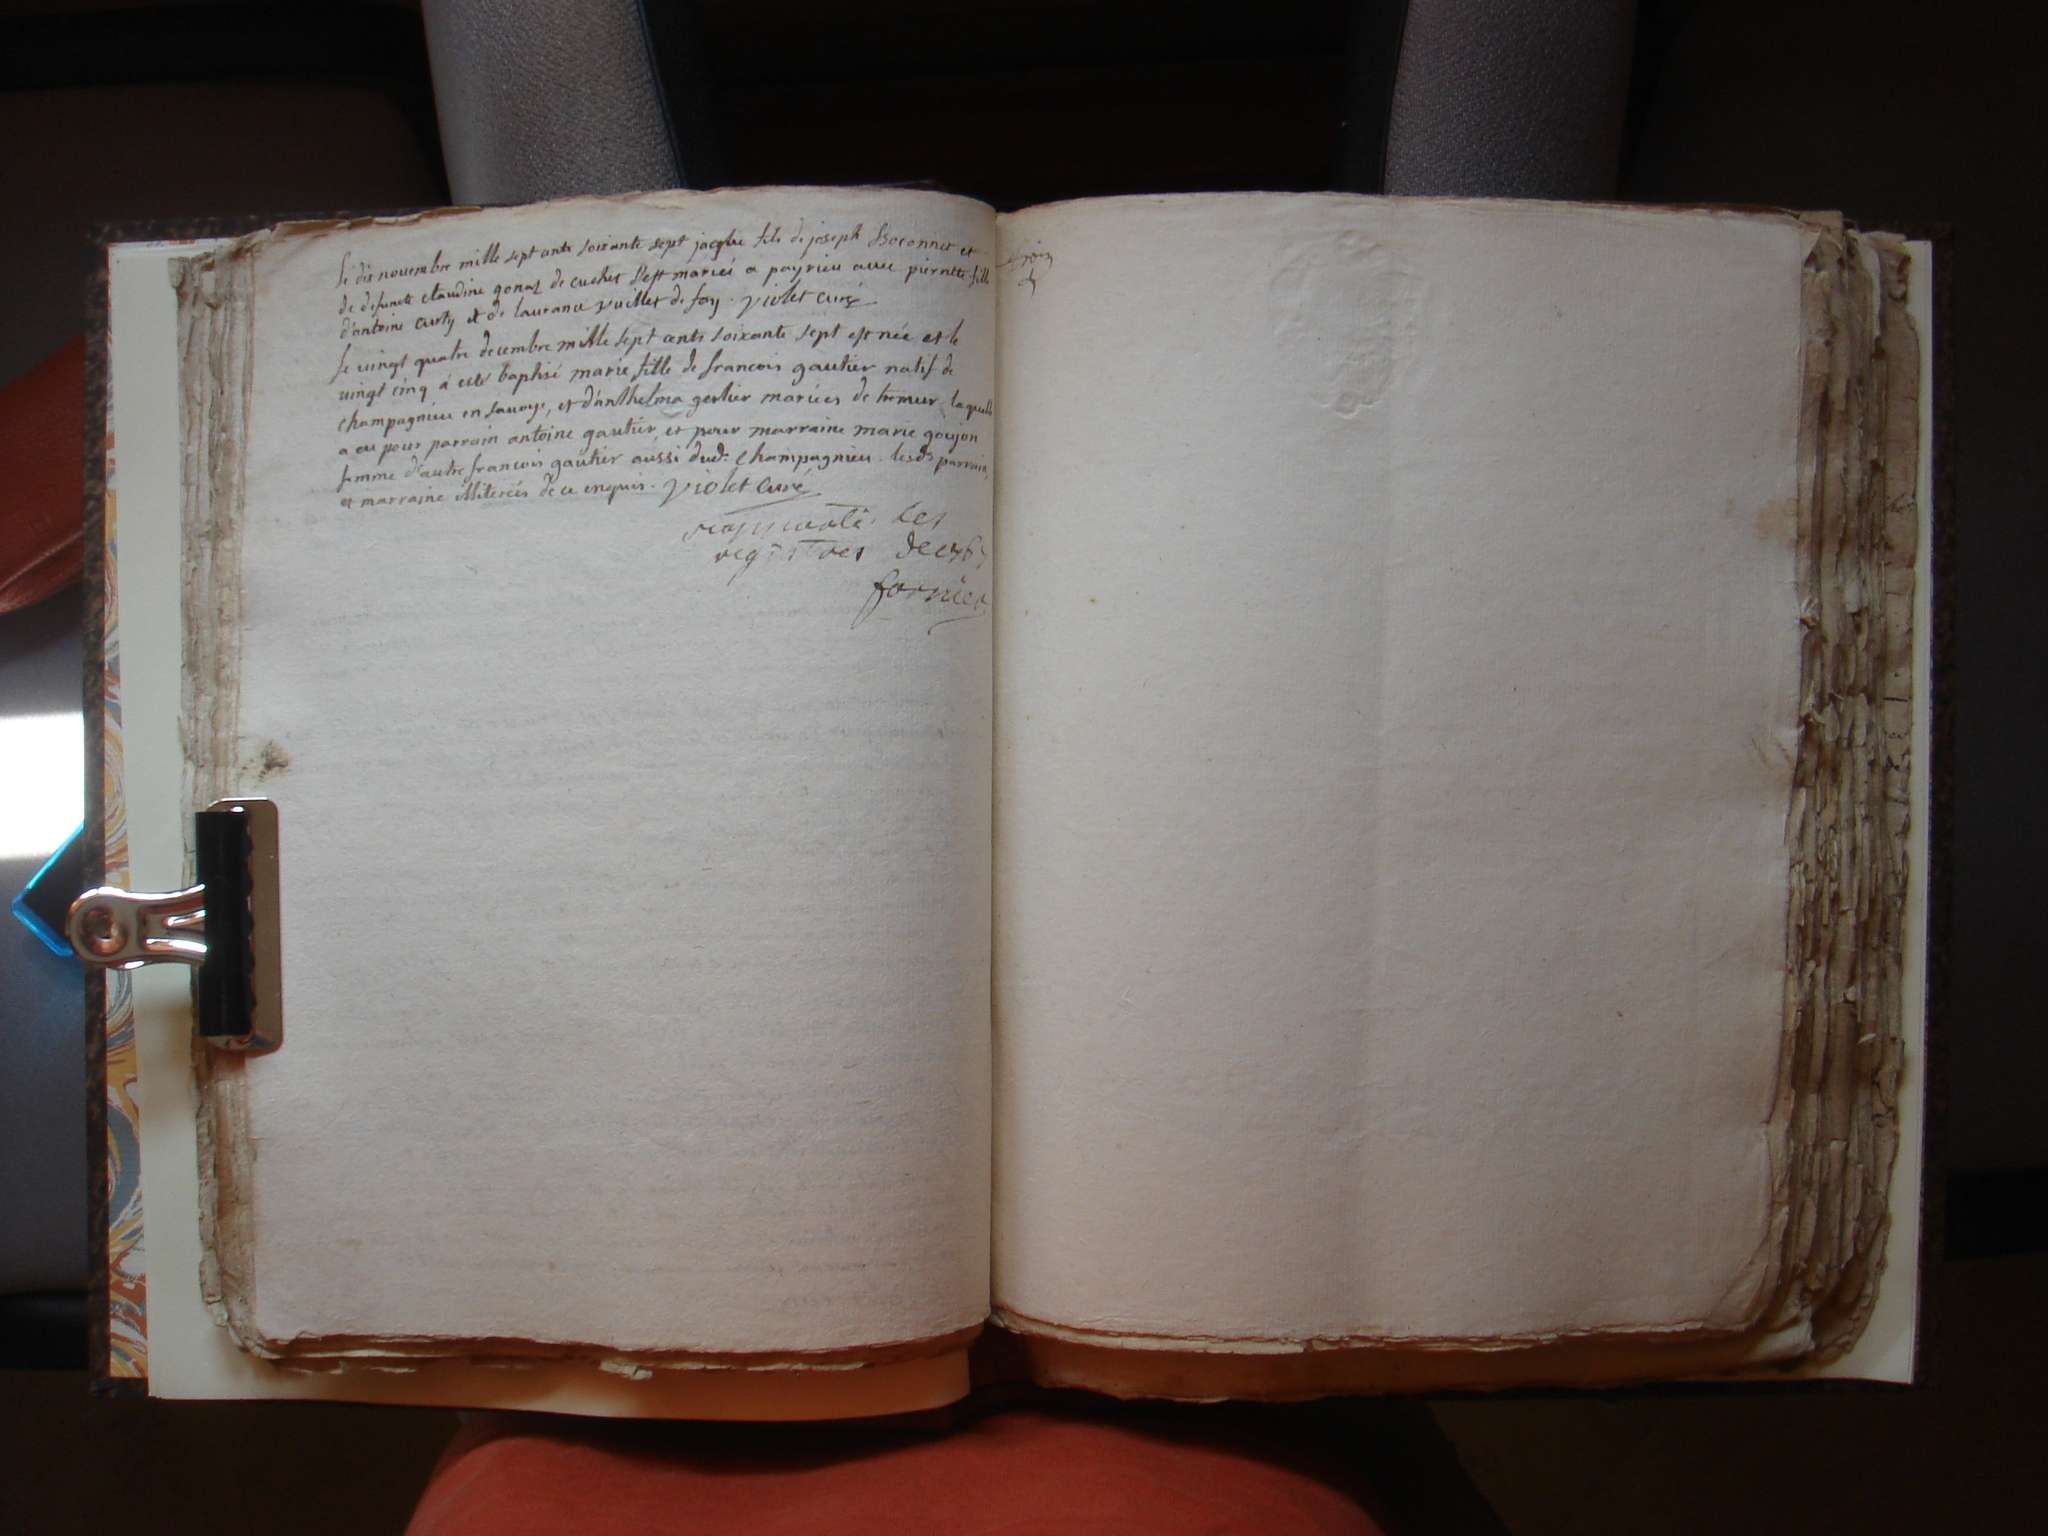 Le dix novembre mille sept cents soixante sept jacque fils de joseph Boconnet et
de defuncte claudine gonaz de cuchet s'est marieé a payrieu avec pierrette fille
d'antoine curty et de laurance vuillet de fay. Violet curé
Le vingt quatre decembre mille sept cents soixante sept est née et le
vingt cinq á eté baptisé marie fille de francois gautier natif de
champagnieu en savoye, et d'anthelma gerlier mariées de tremur laquelle
a eu pour parrain antoine gautier, et pour marraine marie goujon
femme d'autre francois gautier aussi dud. Champagnieu. lesds parrain,
et marraine illiterés de ce enquis. Violet curé
des
registres de
fornier